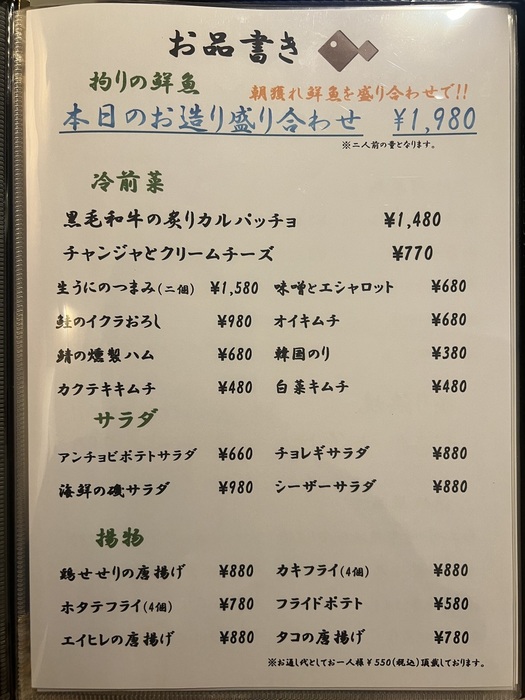 お品書き
拘りの鮮魚
朝獲れ鮮魚を盛り合わせで!!
本日のお造り盛り合わせ ¥1,980
※二人前の量となります。
冷前菜
黒毛和牛の炙りカルパッチョ ¥1,480
チャンジャとクリームチーズ ¥770
生うにのつまみ(二個) ¥1,580 味噌とエシャロット ¥680
鮭のイクラおろし ¥980 オイキムチ ¥680
鯖の燻製ハム ¥680 韓国のり ¥380
カクテキキムチ ¥480 白菜キムチ ¥480
サラダ
アンチョビポテトサラダ ¥660 チョレギサラダ ¥880
海鮮の磯サラダ ¥980 シーザーサラダ ¥880
揚物
鶏せせりの唐揚げ ¥880 カキフライ(4個) ¥880
ホタテフライ(4個) ¥780 フライドポテト ¥580
エイヒレの唐揚げ ¥880 タコの唐揚げ ¥780
※お通し代としてお一人様¥550(税込)頂戴しております。